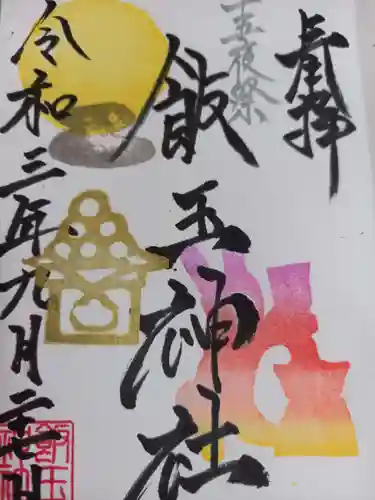 奉拝
十五夜祭
飯玉神社
令和三年九月二十一日